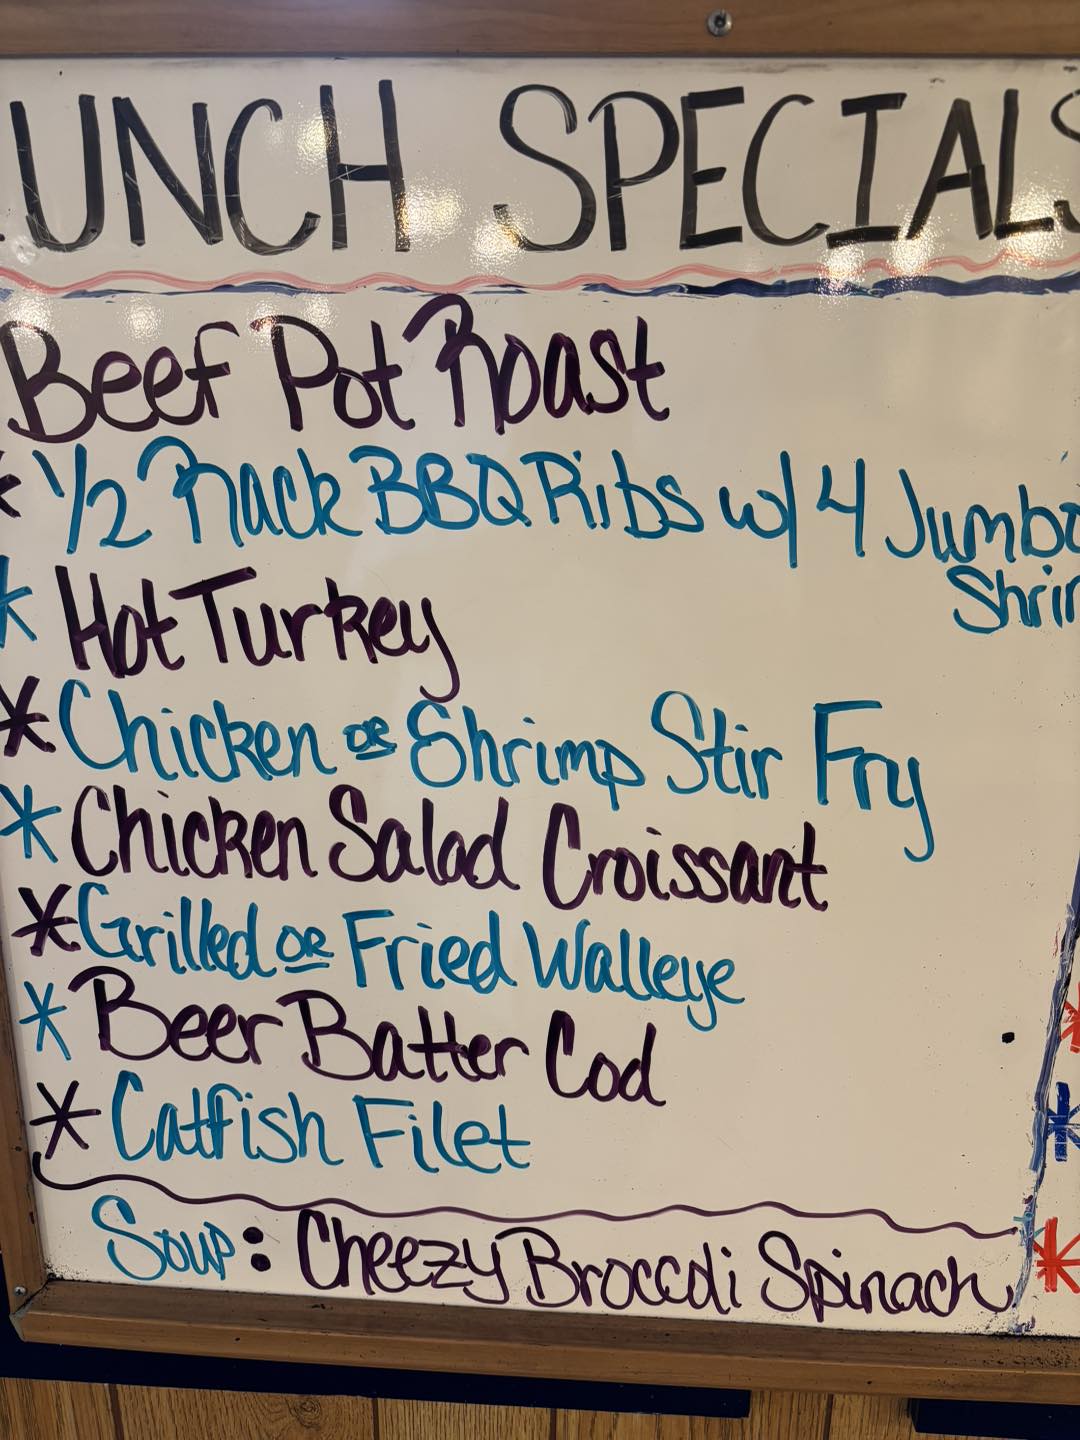 UNCH SPECIALS
Beef Pot Roast
* 1/2 Rack BBQ Ribs w/ 4 Jumbo
Shrim
* Hot Turkey
* Chicken OR Shrimp Stir Fry
* Chicken Salad Croissant
* Grilled OR Fried Walleye
* Beer Batter Cod
* Catfish Filet
Soup: Cheezy Broccoli Spinach